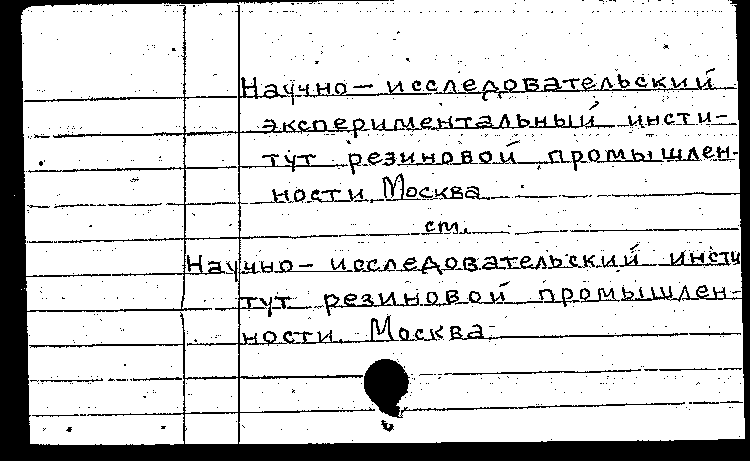 Научно - исследовательский
экспериментальный инсти-
тут резиновой промышлен-
ности. Москва
см.
Научно - исследовательский инсти
тут резиновой промышлен-
ности. Москва.